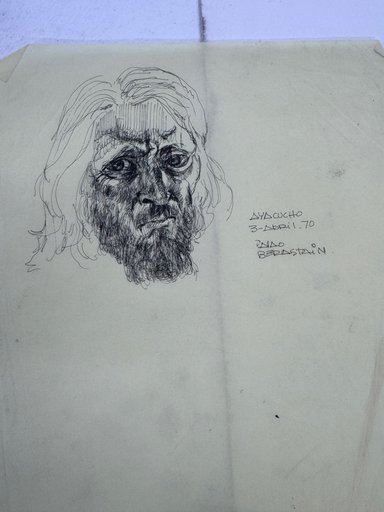 AYACUCHO
3-ABRIL.70
BERASTAIN